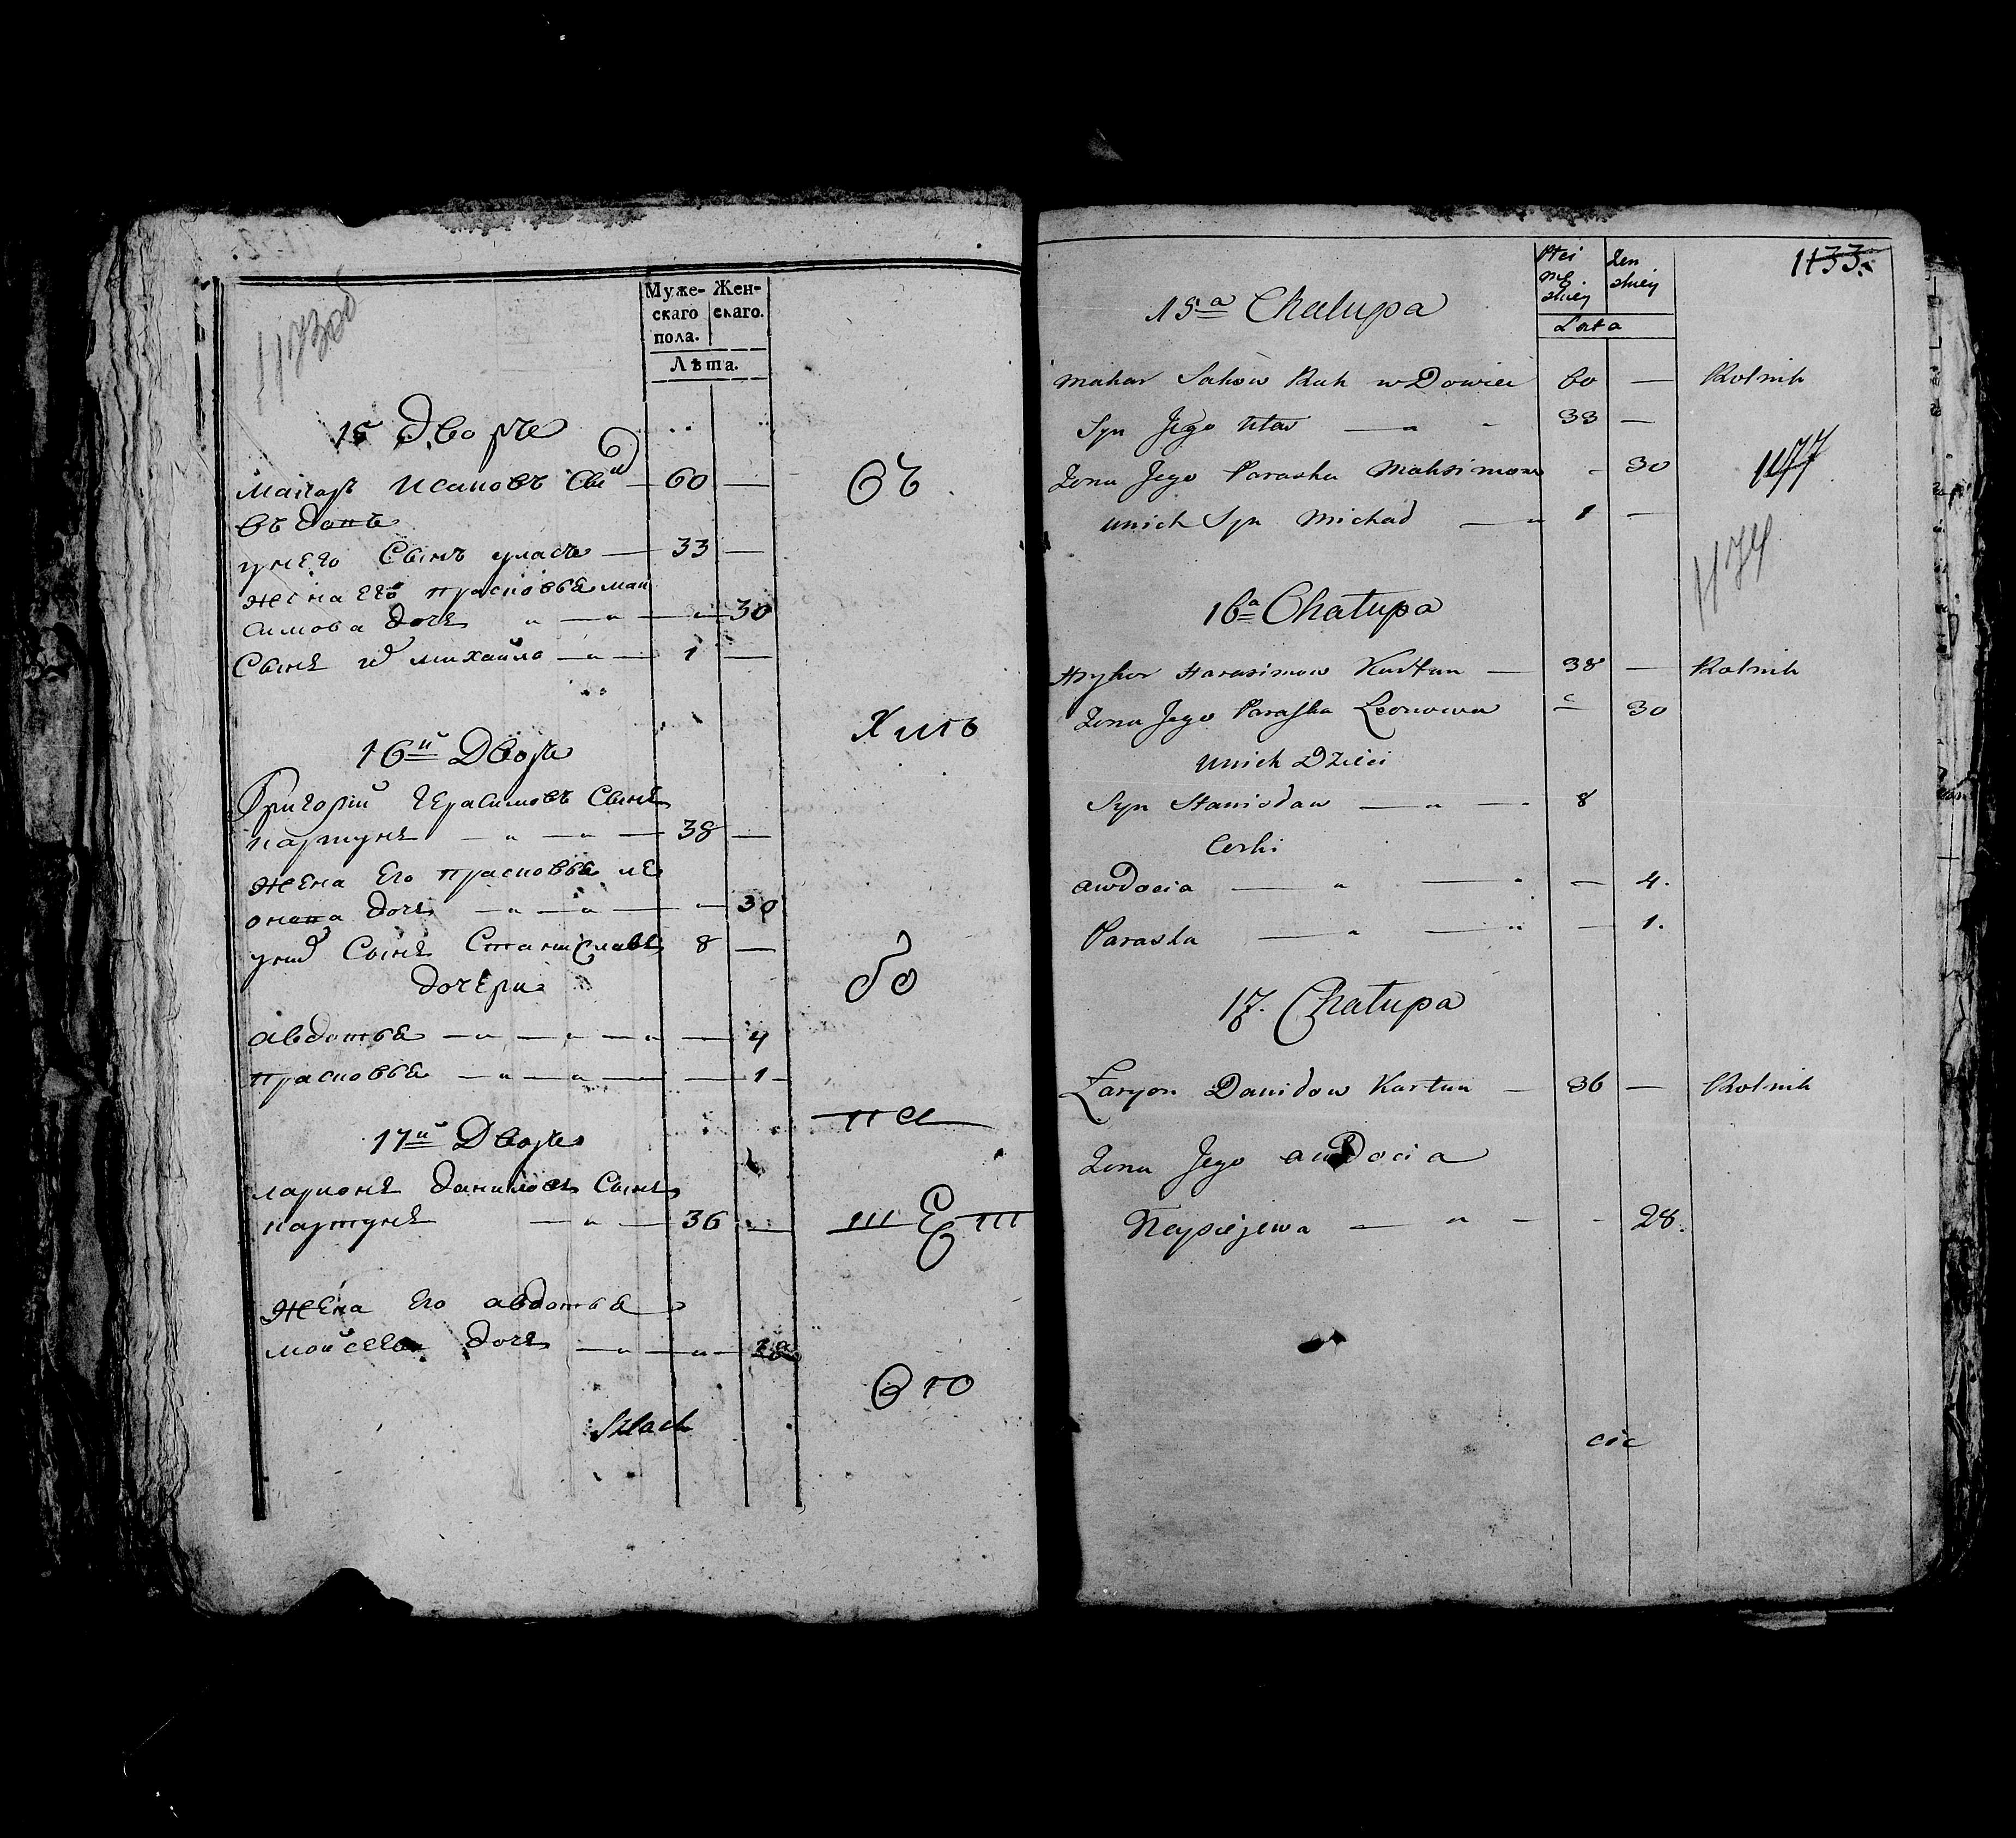 1173об
Муже-
скаго
пола.
Жен-
скаго.
Лѣта.
15 Дворъ
Макаръ Исаковъ Сын — 60 —
вдовъ
унего Сынъ уласъ — 33 —
жена его прасковья мак
симова дочь " — " — " — 30
Сынъ михайло — " — 1 —
16й Дворъ
Григорий Герасимовъ Сынъ
картунъ — " — " — 38 —
жена Его прасковья ле
она дочь — " — " — — 30
Сынъ Станиславъ 8 —
дочери
авдотья — " — " — " — 4
прасковья — " — " — — 1 -
17й Дворъ
ларионъ даниловъ Сынъ
картунъ — " — 36 —
Жена его авдотья
мойсеева дочь — " — " — 28
Szlach
съ
бо
па
ш Е ш
вго
1133.
Płci
mę
skiey
Żen
skiey
Lata
15a Chalupa
Makar Sakow Ruk wDowiec 60 — Rolnik
Syn Jego Ułas — " - 33 —
Zona Jego Paraska Maksimowa - 30
unich Syn Michał — " 1 —
1177
1174
16a Chałupa
Hryhor Harasimow Kartun — 38 — Rolnik
Zona Jego Paraska Leonowa - 30
unich Dzieci
Syn Stanisław — " — 8
Corki
awdocia — " — " — 4.
Paraska — " — " — 1.
17. Chałupa
Laryon Daniłow Kartun — 36 — Rolnik
Zona Jego awDocia
Meysiejewa — " - - 28.
cic